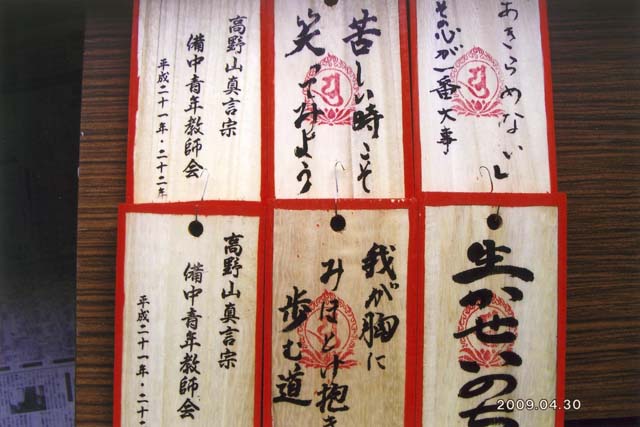 高野山真言宗
備中青年教師会
平成二十一年・二十二年
苦しい時こそ
笑ってみよう
あきらめない
その心が一番大事
高野山真言宗
備中青年教師会
平成二十一年・二十二
我が胸に
みほとけ抱き
歩む道
生かせいのち
2009.04.30